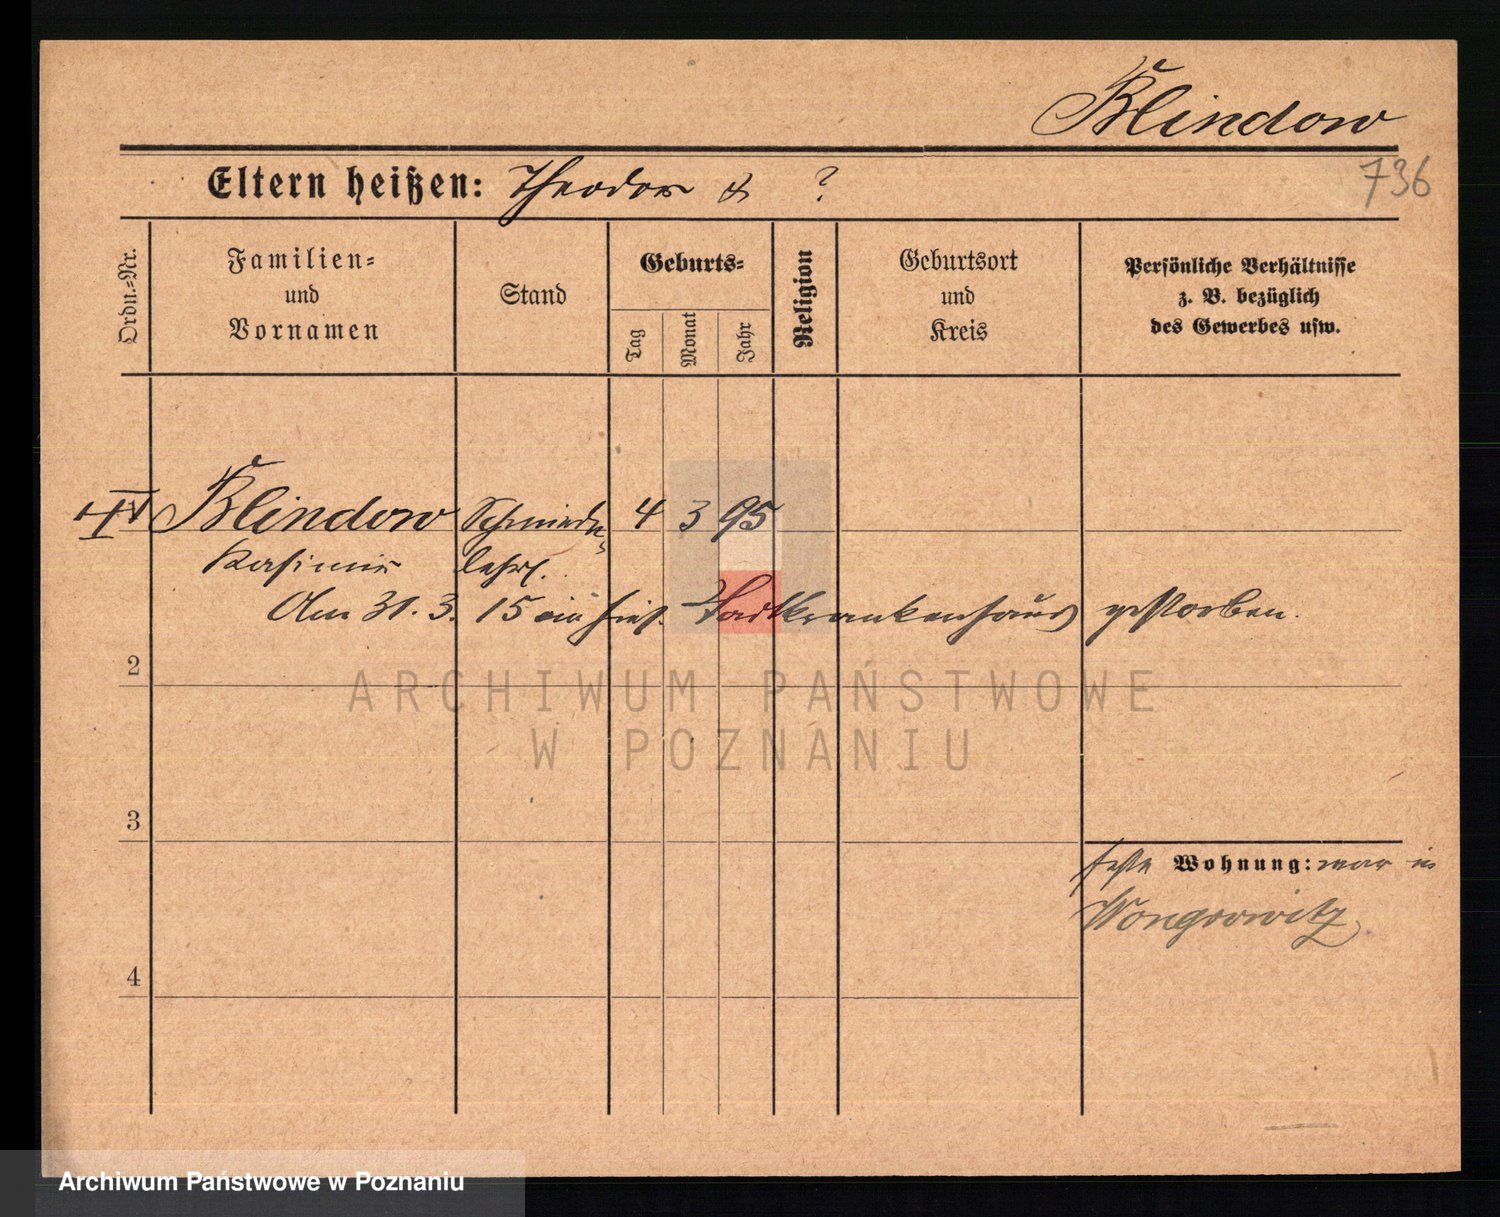 Blindow
Eltern heißen: Theodor & ?
736
Ordn.-Nr.
Familien-
und
Vornamen
Stand
Geburts-
Tag
Monat
Jahr
Religion
Geburtsort
und
Kreis
Persönliche Verhältnisse
z. B. bezüglich
des Gewerbes usw.
Blindow Schmiede- 4 3 95
Kasimir lehrl.
Am 31. 3. 15 im hies. Stadtkrankenhaus gestorben.
2
3
4
feste Wohnung: war in
Wongrowitz
ARCHIWUM PAŃSTWOWE
W POZNANIU
Archiwum Państwowe w Poznaniu